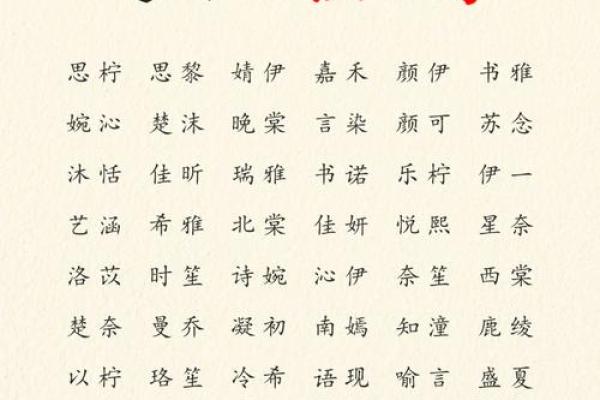 思柠 思黎 婧伊 嘉禾 颜伊 书雅
婉沁 楚沫 晚棠 言染 颜可 苏念
沐恬 佳昕 瑞雅 书诺 乐柠 伊一
艺涵 希雅 北棠 佳妍 悦熙 星奈
洛苡 时笙 诗婉 沁伊 奈笙 西棠
楚奈 曼乔 凝初 南嫣 知潼 鹿绫
以柠 珞笙 冷希 语现 喻言 盛夏